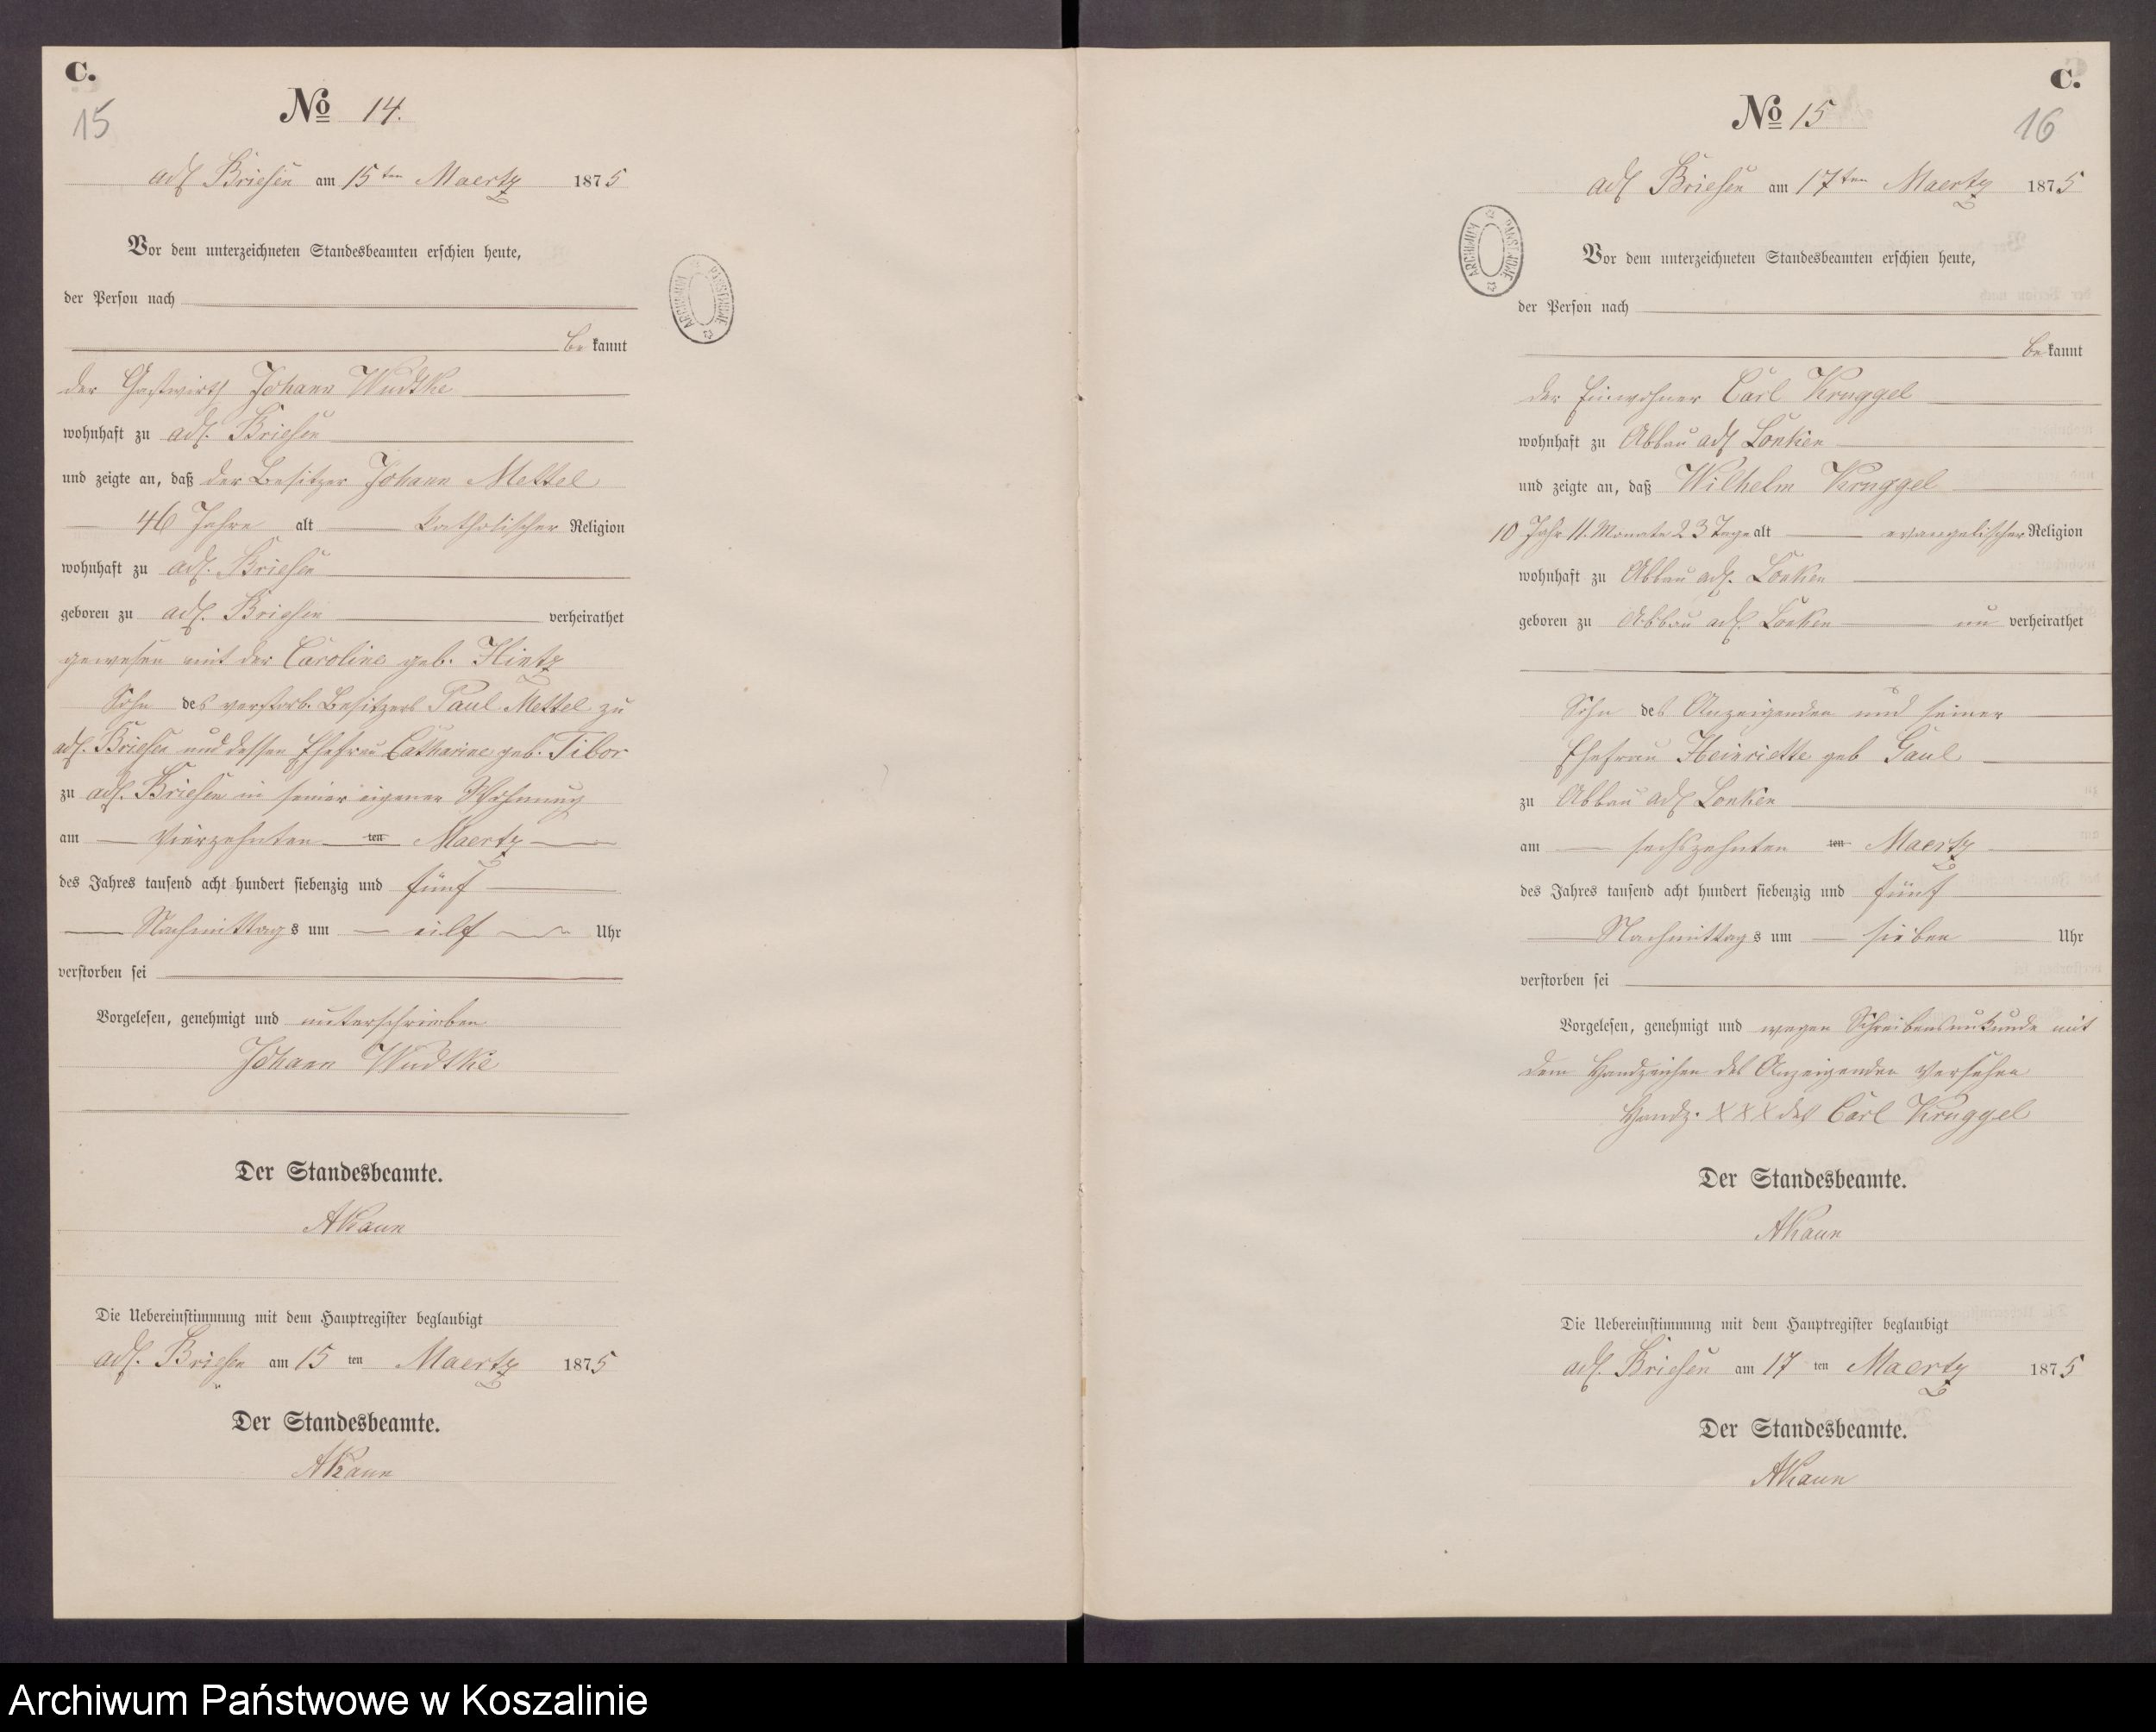 C.
15
No 14.
adl Briesen am 15ten Maertz 1875
Vor dem unterzeichneten Standesbeamten erschien heute,
der Person nach
bekannt
der Gastwirth Johann Wudtke
wohnhaft zu adl. Briesen
und zeigte an, daß der Besitzer Johann Mettel
46 Jahre alt katholischer Religion
wohnhaft zu adl. Briesen
geboren zu adl. Briesen verheirathet
gewesen mit der Caroline geb. Hintz
Sohn des verstorb. Besitzers Paul Mettel zu
adl. Briesen und dessen Ehefrau Catharine geb. Tibor
zu adl. Briesen in seiner eigenen Wohnung
am vierzehnten ten Maertz
des Jahres tausend acht hundert siebenzig und fünf
Nachmittags um eilf Uhr
verstorben sei
Vorgelesen, genehmigt und unterschrieben
Johann Wudtke
Der Standesbeamte.
AKaun
Die Uebereinstimmung mit dem Hauptregister beglaubigt
adl. Briesen am 15 ten Maertz 1875
Der Standesbeamte.
AKaun
ARCHIWUM PAŃSTWOWE
C.
16
No 15
adl Briesen am 17ten Maertz 1875
ARCHIWUM PAŃSTWOWE
Vor dem unterzeichneten Standesbeamten erschien heute,
der Person nach
bekannt
der Einwohner Carl Kruggel
wohnhaft zu Abbau adl Lonken
und zeigte an, daß Wilhelm Kruggel
10 Jahr 11. Monate 23 Tage alt evangelischer Religion
wohnhaft zu Abbau adl. Lonken
geboren zu Abbau adl. Lonken un verheirathet
Sohn des Anzeigenden und seiner
Ehefrau Heinriette geb Gaul
zu Abbau adl Lonken
am sechszehnten ten Maertz
des Jahres tausend acht hundert siebenzig und fünf
Nachmittags um sieben Uhr
verstorben sei
Vorgelesen, genehmigt und wegen Schreibensunkunde mit
dem Handzeichen des Anzeigenden versehen
Handz. XXX des Carl Kruggel
Der Standesbeamte.
AKaun
Die Uebereinstimmung mit dem Hauptregister beglaubigt
adl. Briesen am 17 ten Maertz 1875
Der Standesbeamte.
AKaun
Archiwum Państwowe w Koszalinie